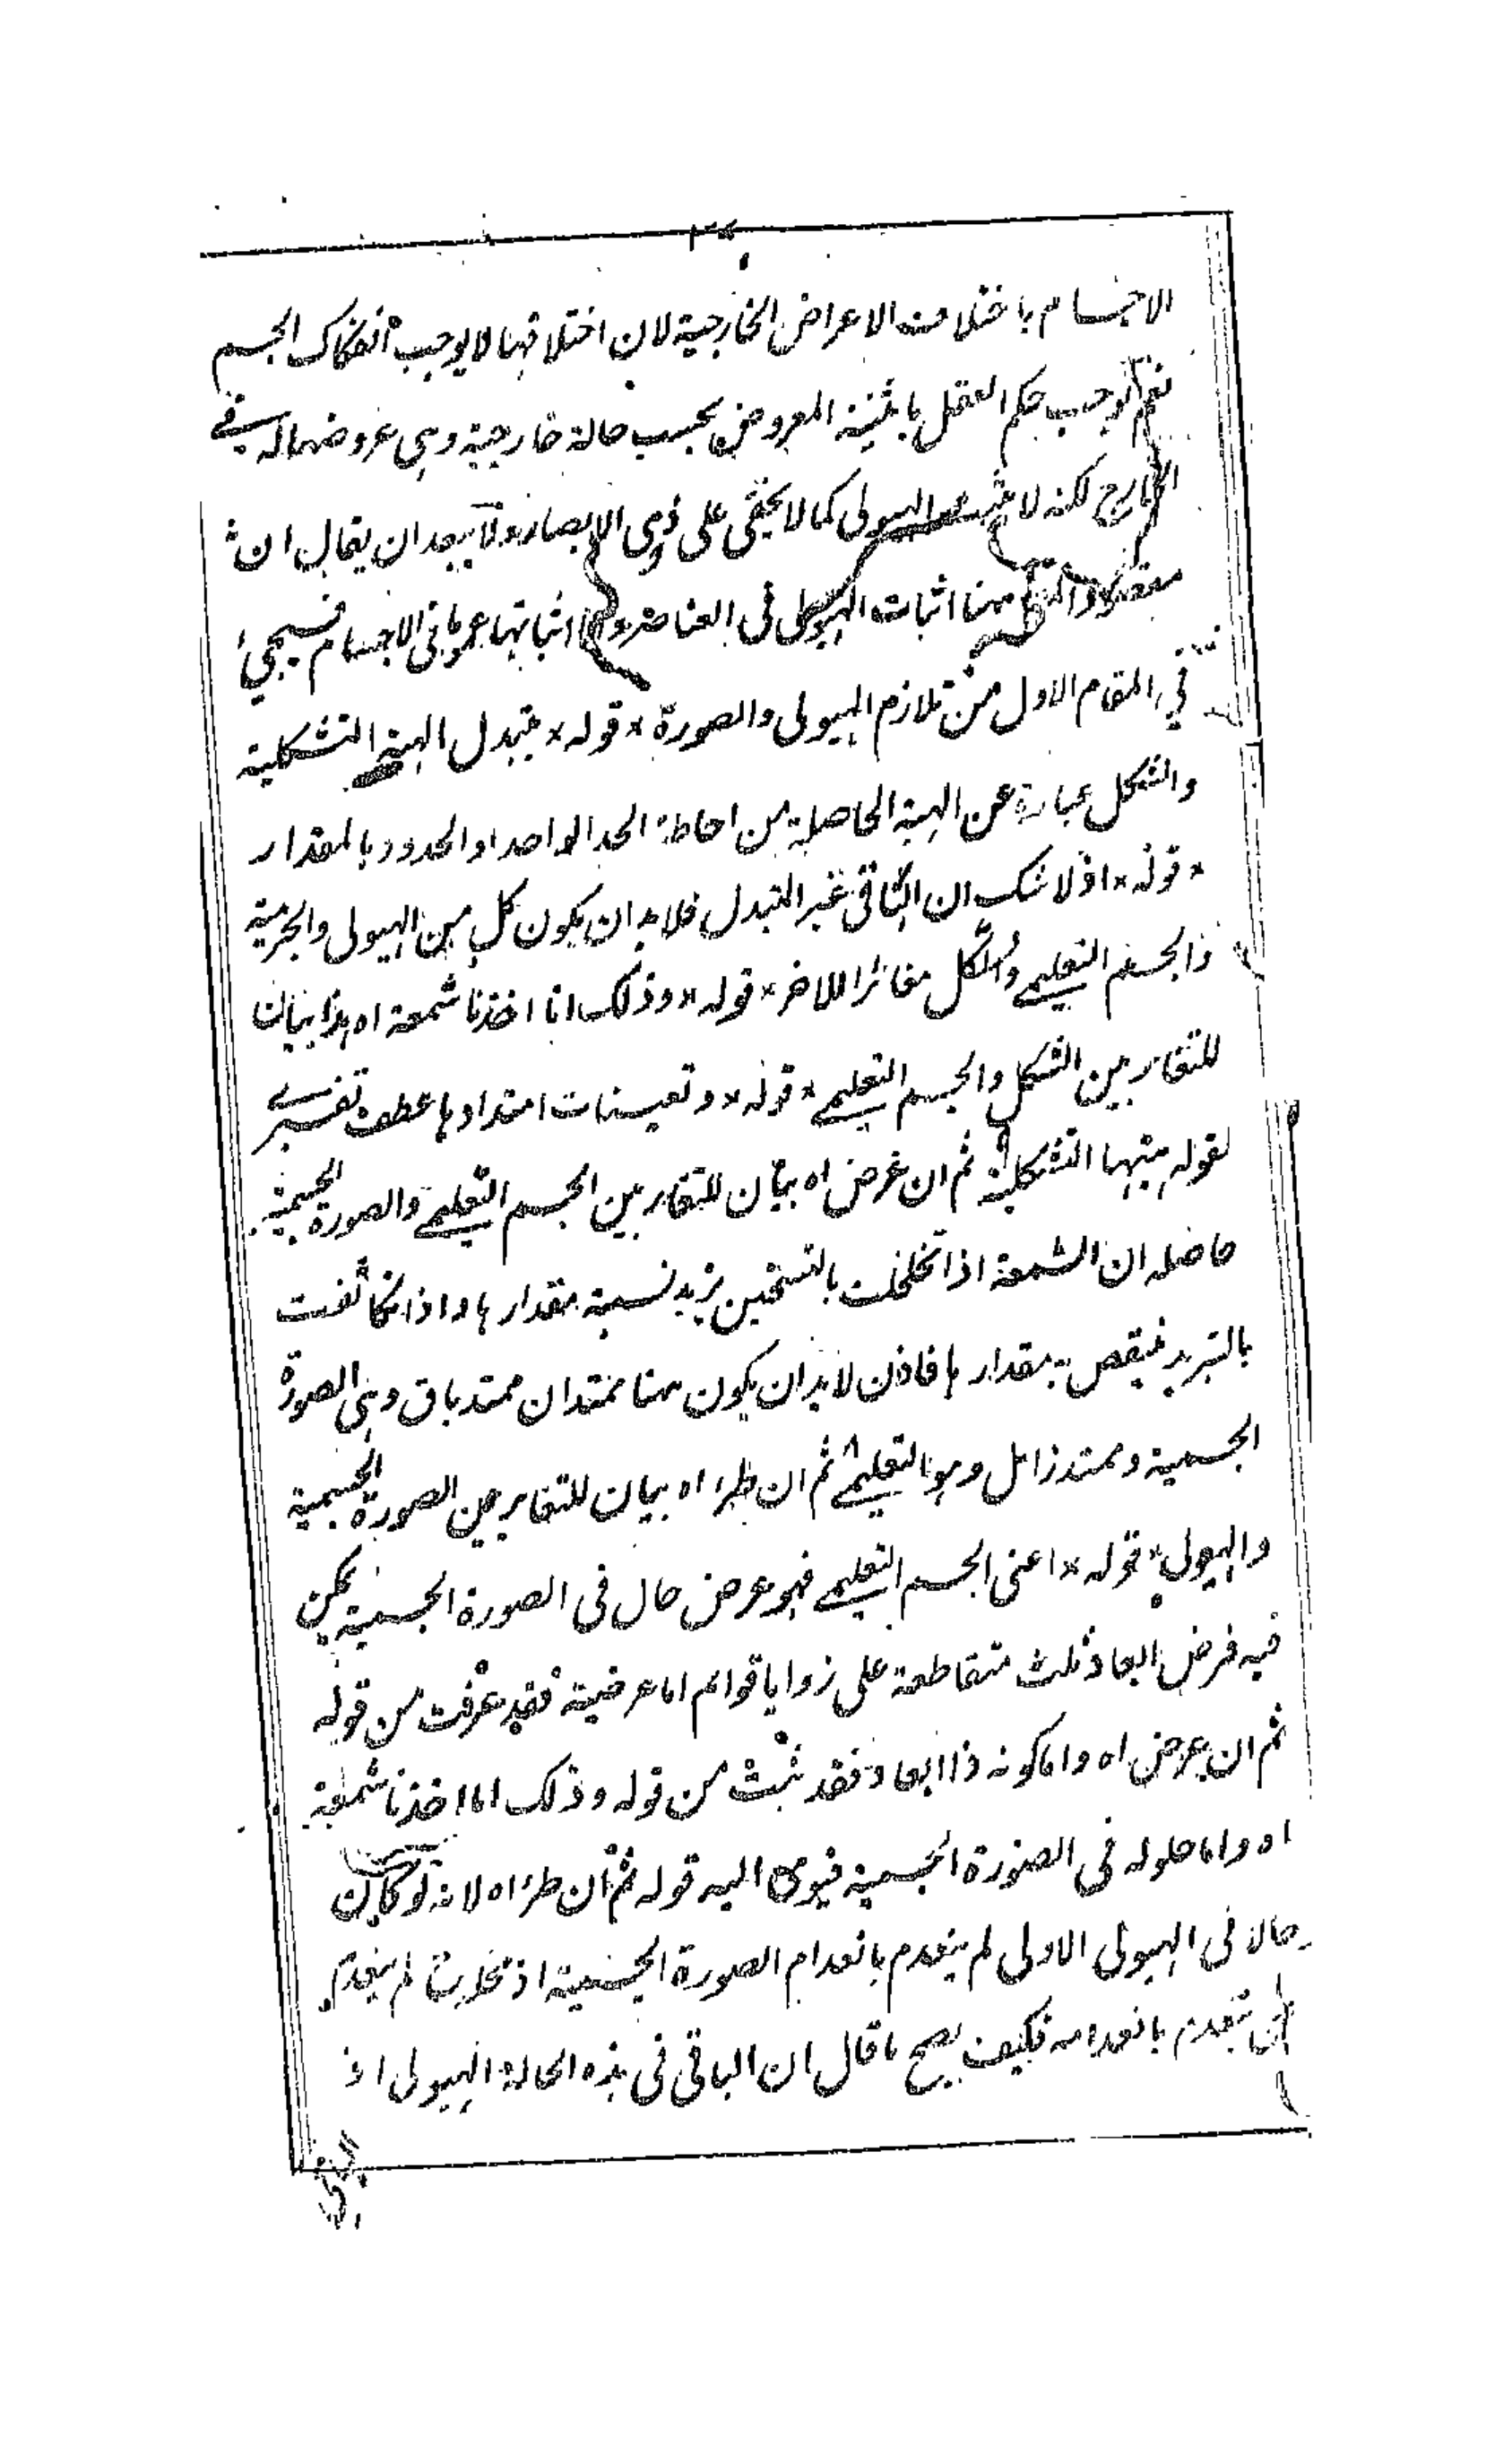 الاجسام باختلاف الاعراض الخارجية لان اختلافها لا يوجب انفكاك الجسم
نعم يوجب حكم العقل باثنينة المعروض بحسب حالة خارجية وهى عروضها له فى
الخارج لكنه لا يثبت الهيولى كما لا يخفى على ذوى الابصار ولا يبعد ان يقال ان
ههنا اثبات الهيولى فى العناصر واما اثباتها عموما فى الاجسام فسيجئ
فى المقام الاول من تلازم الهيولى والصورة * قوله * يتبدل الهيئة التشكلية
والشكل عبارة عن الهيئة الحاصلة من احاطة الحد الواحد او الحدود بالمقدار
* قوله * اذ لا شك ان الباقى غير المتبدل فلا بد ان يكون كل من الهيولى والجرمية
والجسم التعليمى والشكل مغائرا للاخر * قوله * وذلك انا اخذنا شمعة اه هذا بيان
للتغاير بين الشكل والجسم التعليمى * قوله * وتعينات امتدادها عطف تفسيرى
لقوله هيئتها التشكلية ثم ان غرض اه بيان للتغاير بين الجسم التعليمى والصورة الجسمية
حاصله ان الشمعة اذا تخلخلت بالتسخين يزيد نسبة مقدارها واذا تكاثفت
بالتبريد ينقص مقدارها فاذن لا بد ان يكون ههنا ممتدان ممتد باق وهى الصورة
الجسمية وممتد زائل وهو التعليمى ثم ان طرء اه بيان للتغاير بين الصورة الجسمية
والهيولى * قوله * اعنى الجسم التعليمى فهو عرض حال فى الصورة الجسمية يمكن
فيه فرض ابعاد ثلث متقاطعة على زوايا قوائم اما عرضية فقد عرفت من قوله
ثم ان عرض اه واما كونه ذا ابعاد فقد ثبت من قوله وذلك انا اخذنا شمعة
اه واما حلوله فى الصورة الجسمية فيومى اليه قوله ثم ان طرء اه لانه لو كان
حالا فى الهيولى الاولى لم ينعدم بانعدام الصورة الجسمية اذ لم ينعدم
ينعدم بانعدامه فكيف يصح ما قال ان الباقى فى هذه الحالة الهيولى اذ